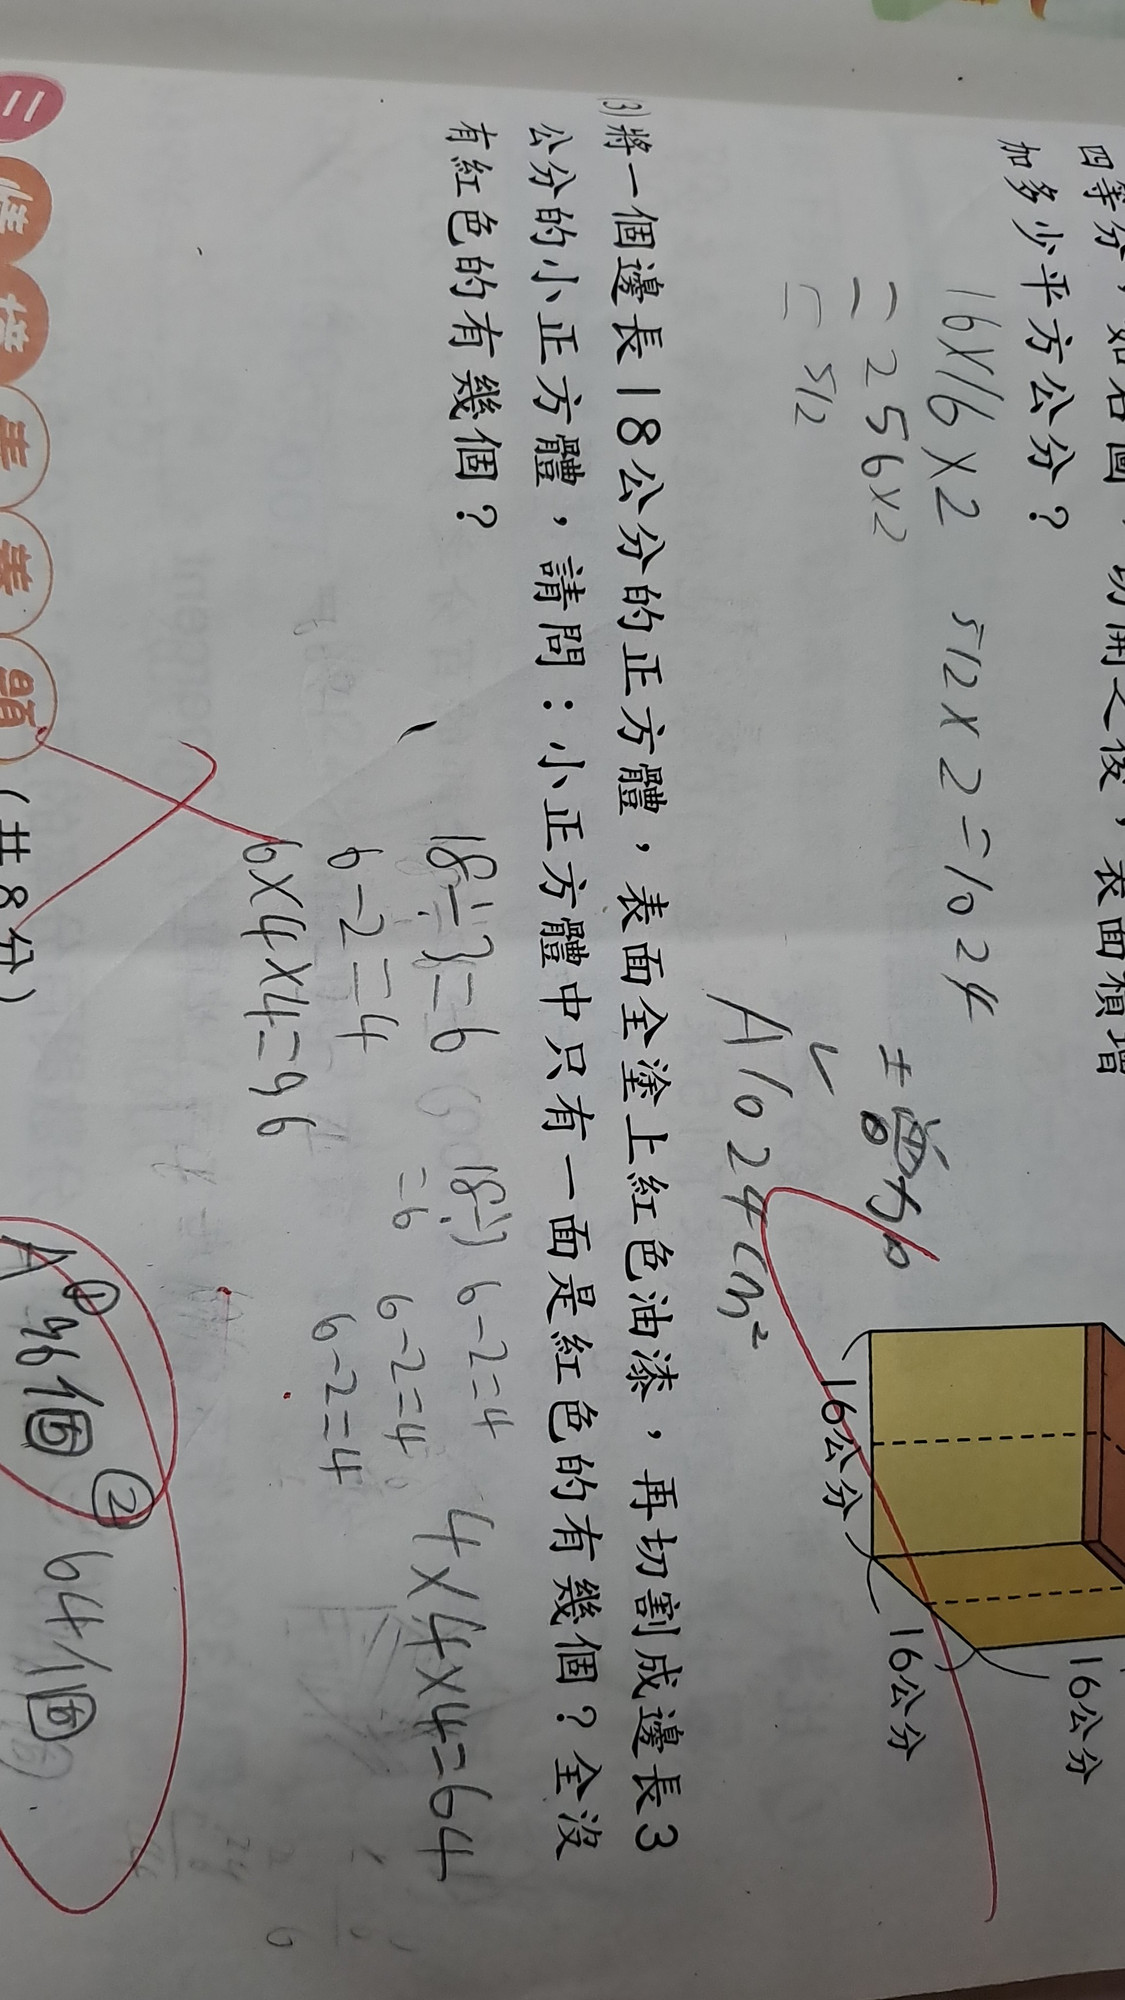 四等分，如右圖，切開之後，表面積增
加多少平方公分？
16×16×2
=256×2
=512
512×2=1024
增加
A1024cm²
16公分
16公分
16公分
(3)將一個邊長18公分的正方體，表面全塗上紅色油漆，再切割成邊長3
公分的小正方體，請問：小正方體中只有一面是紅色的有幾個？全沒
有紅色的有幾個？
18÷3=6
6-2=4
6×4×4=96
18÷3
=6
6-2=4
6-2=4
6-2=4
4×4×4=64
A①96個②64個
二
(共8分)